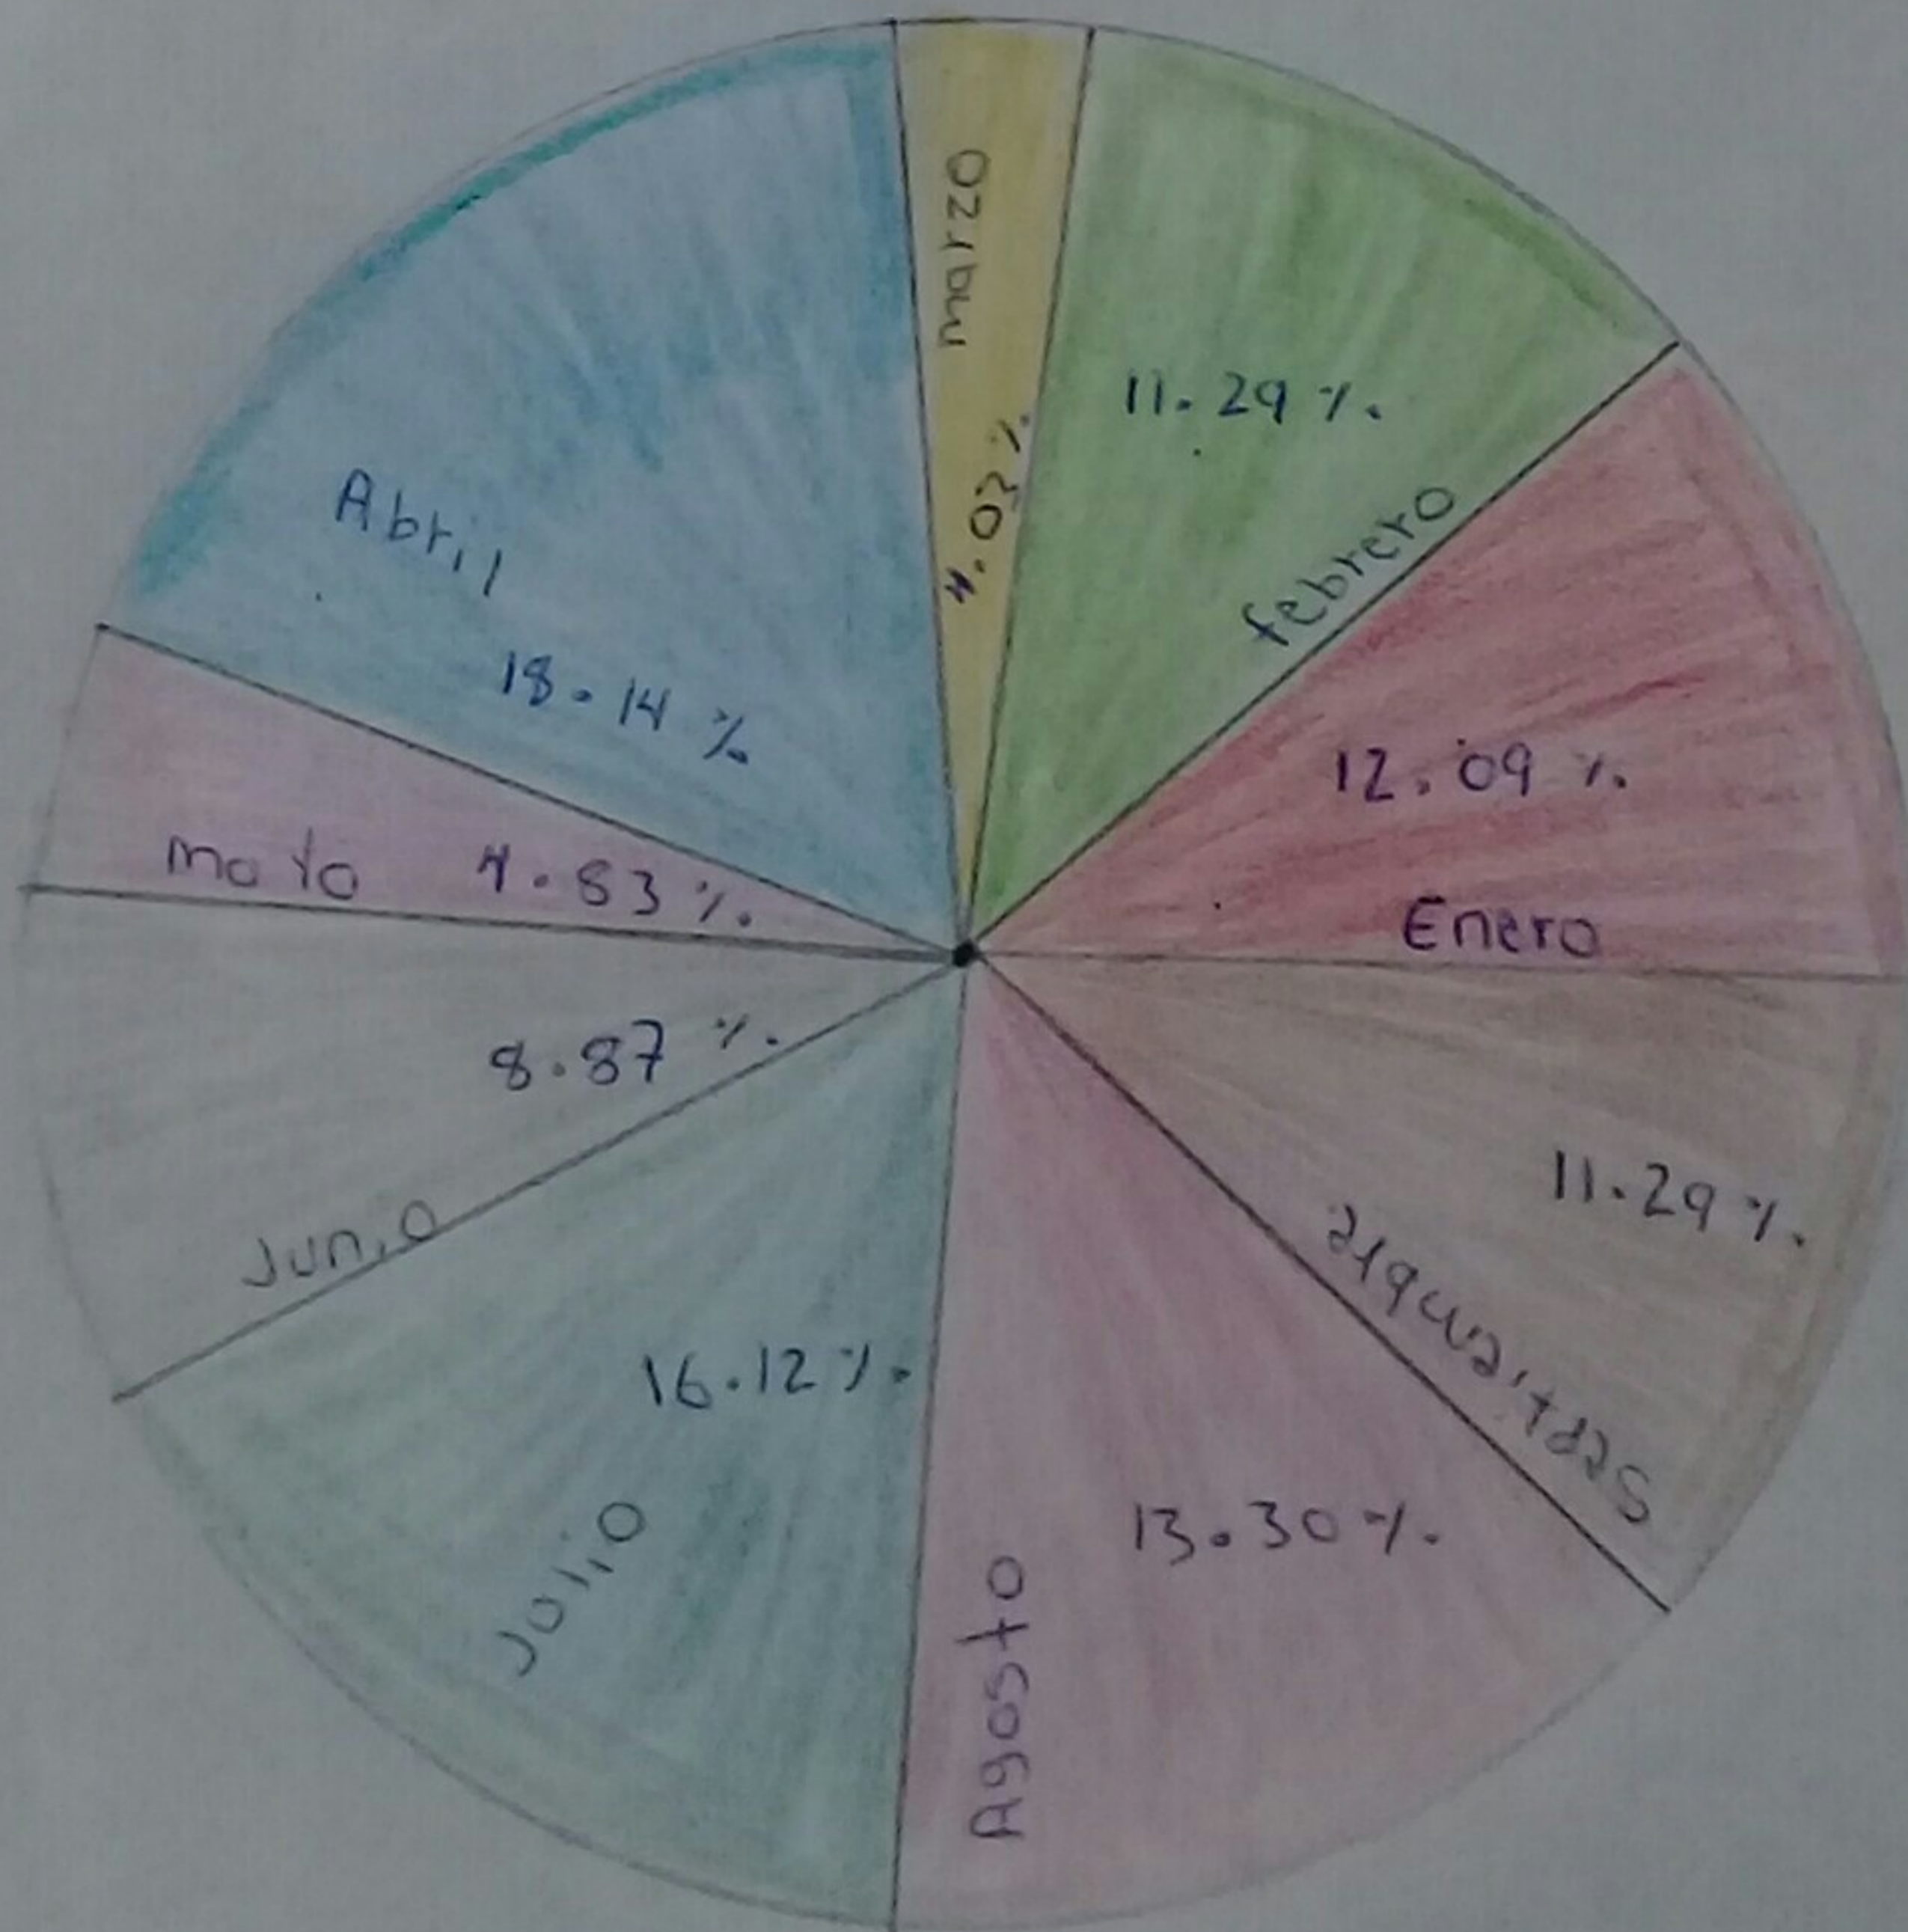 marzo
4.03%
11.29%
febrero
12.09%
Enero
11.29%
Septiembre
13.30%
Agosto
16.12%
Julio
8.87%
Junio
mayo 4.83%
Abril
18.14%